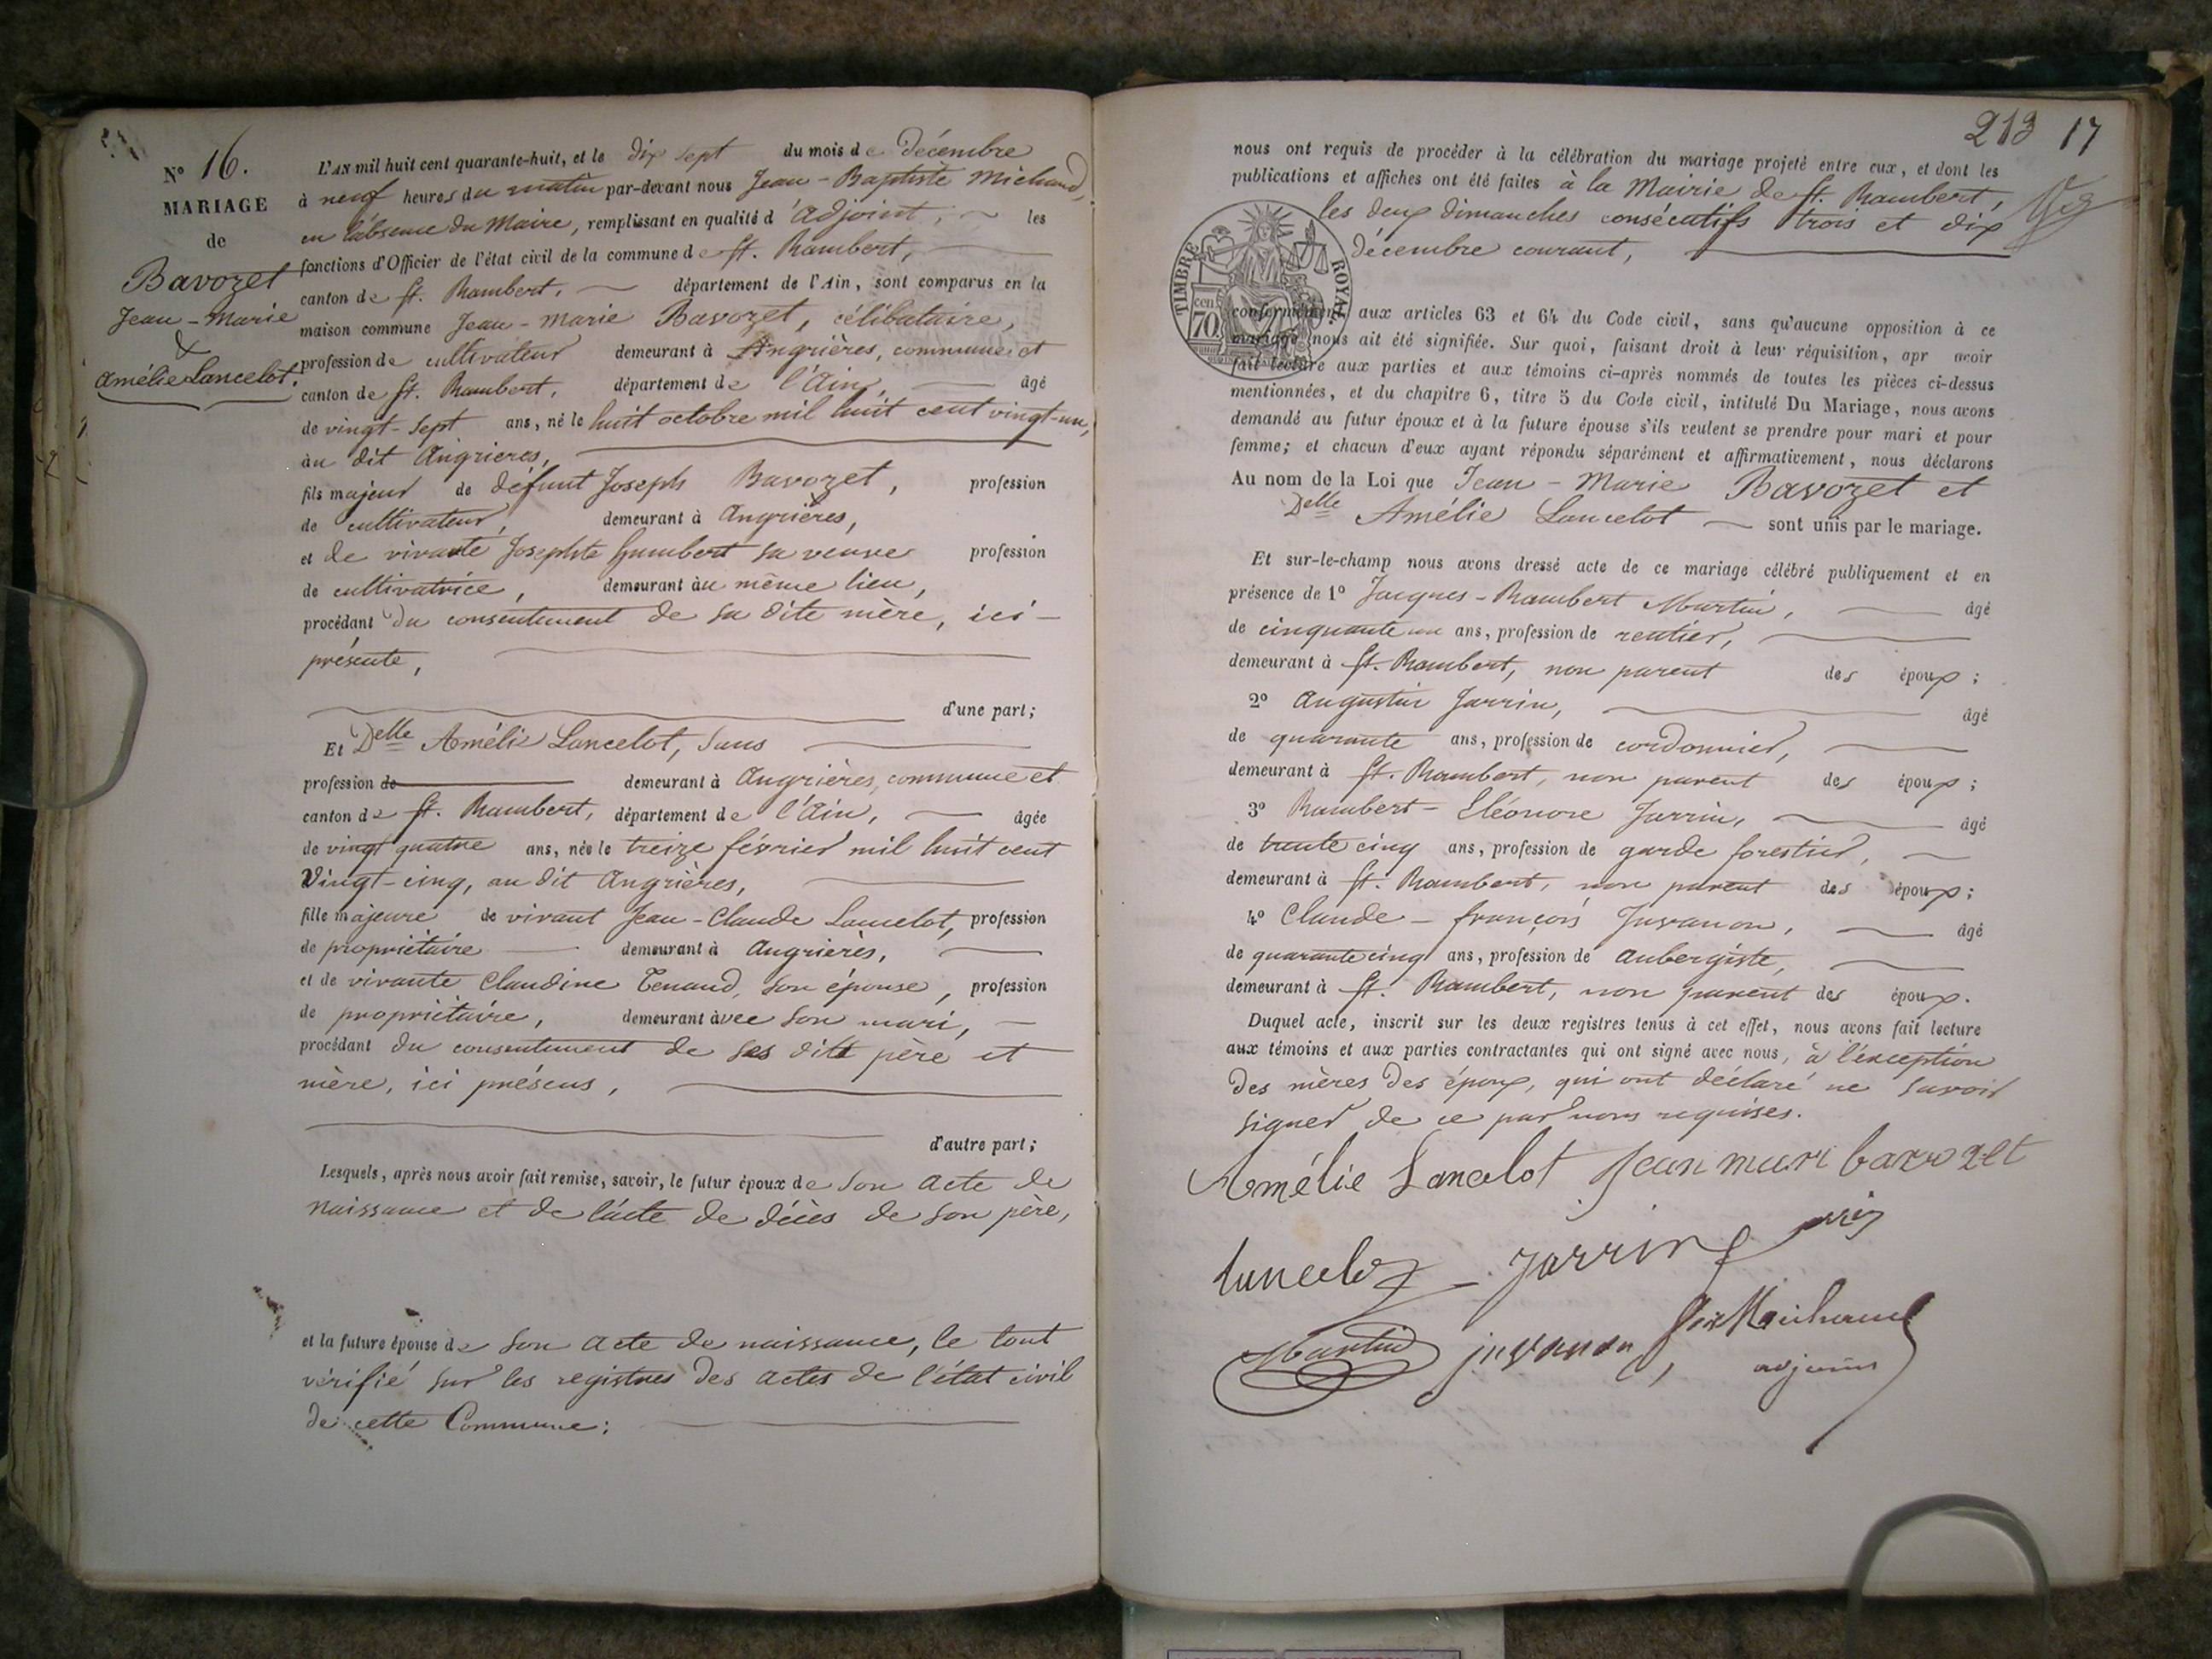 N° 16.
MARIAGE
de
Bavozet
Jean-Marie
&
Amélie Lancelot.
L'AN mil huit cent quarante-huit, et le dix sept du mois de décembre
à neuf heures du matin par-devant nous Jean-Baptiste Michaud,
en l'absence du Maire, remplissant en qualité d'adjoint, les
fonctions d'Officier de l'état civil de la commune de St. Rambert,
canton de St. Rambert, département de l'Ain, sont comparus en la
maison commune Jean-Marie Bavozet, célibataire,
profession de cultivateur demeurant à Angrières, commune et
canton de St. Rambert, département de l'Ain, âgé
de vingt-sept ans, né le huit octobre mil huit cent vingt-un,
au dit Angrieres,
fils majeur de défunt Joseph Bavozet, profession
de cultivateur, demeurant à Angrières,
et de vivante Josephte humbert sa veuve profession
de cultivatrice, demeurant au même lieu,
procédant du consentement de sa dite mère, ici-
présente,
d'une part;
Et Delle Amélie Lancelot, sans
profession de demeurant à Angrières, commune et
canton de St. Rambert, département de l'Ain, âgée
de vingt quatre ans, née le treize février mil huit cent
Vingt-cinq, au dit Angrières,
fille majeure de vivant Jean-Claude Lancelot, profession
de propriétaire demeurant à Angrières,
et de vivante Claudine Tenand, son épouse, profession
de propriétaire, demeurant avec son mari,
procédant du consentement de ses dits père et
mère, ici présens,
d'autre part;
Lesquels, après nous avoir fait remise, savoir, le futur époux de son acte de
naissance et de l'acte de décès de son père,
et la future épouse de son acte de naissance, le tout
vérifié sur les registres des actes de l'état civil
de cette Commune;
213 17
nous ont requis de procéder à la célébration du mariage projeté entre eux, et dont les
publications et affiches ont été faites à la Mairie de St. Rambert,
les deux dimanches consécutifs trois et dix
décembre courant,
TIMBRE ROYAL
cen. 70
conformément aux articles 63 et 64 du Code civil, sans qu'aucune opposition à ce
mariage nous ait été signifiée. Sur quoi, faisant droit à leur réquisition, apr avoir
fait lecture aux parties et aux témoins ci-après nommés de toutes les pièces ci-dessus
mentionnées, et du chapitre 6, titre 5 du Code civil, intitulé Du Mariage, nous avons
demandé au futur époux et à la future épouse s'ils veulent se prendre pour mari et pour
femme; et chacun d'eux ayant répondu séparément et affirmativement, nous déclarons
Au nom de la Loi que Jean-Marie Bavozet et
Delle Amélie Lancelot sont unis par le mariage.
Et sur-le-champ nous avons dressé acte de ce mariage célébré publiquement et en
présence de 1° Jacques-Rambert Martin, âgé
de cinquante un ans, profession de rentier,
demeurant à St. Rambert, non parent des époux;
2° Augustin Jarrin, âgé
de quarante ans, profession de cordonnier,
demeurant à St. Rambert, non parent des époux;
3° Rambert-Eléonore Jarrin, âgé
de trente cinq ans, profession de garde forestier,
demeurant à St. Rambert, non parent des époux;
4° Claude-françois Juvanon, âgé
de quarante cinq ans, profession de aubergiste,
demeurant à St. Rambert, non parent des époux.
Duquel acte, inscrit sur les deux registres tenus à cet effet, nous avons fait lecture
aux témoins et aux parties contractantes qui ont signé avec nous, à l'exception
des mères des époux, qui ont déclaré ne savoir
signer de ce par nous requises.
Amélie Lancelot Jean mari bavozet
Lancelot Jarrin
Martin juvanon Michaud
adjoint